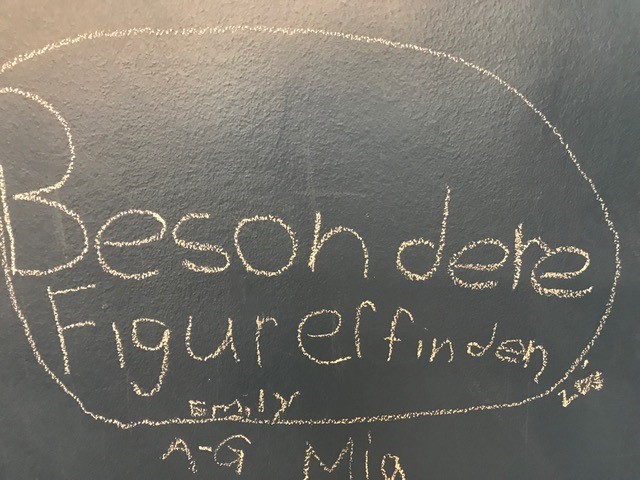 Besondere
Figur erfinden
Emily
A-G Mia